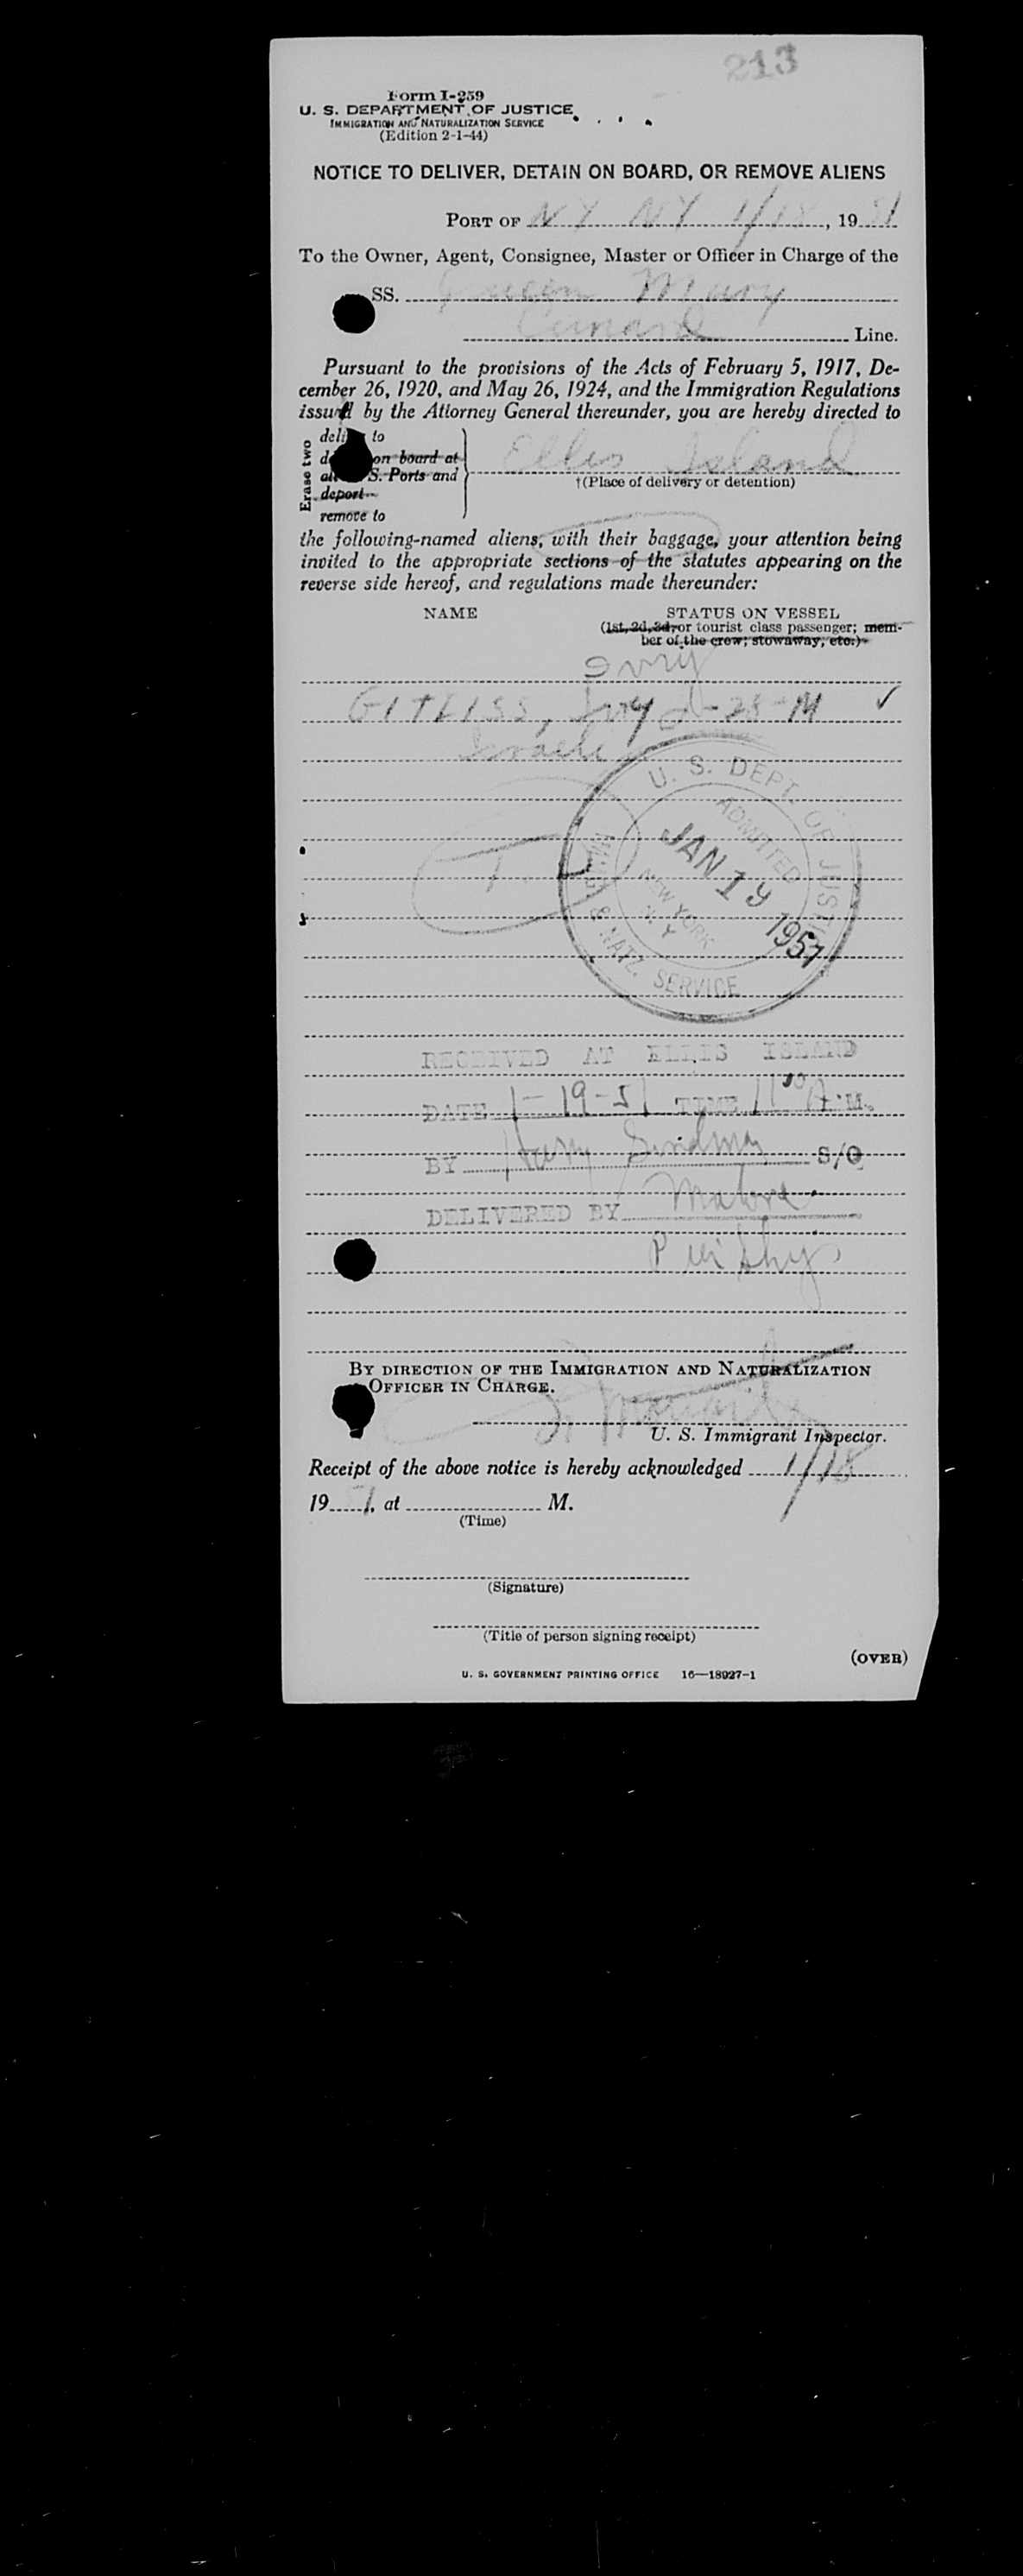 213
Form I-259
U. S. DEPARTMENT OF JUSTICE
IMMIGRATION AND NATURALIZATION SERVICE
(Edition 2-1-44)
NOTICE TO DELIVER, DETAIN ON BOARD, OR REMOVE ALIENS
PORT OF NY NY 1/18, 1951
To the Owner, Agent, Consignee, Master or Officer in Charge of the
SS. Queen Mary
Cunard Line.
Pursuant to the provisions of the Acts of February 5, 1917, De-
cember 26, 1920, and May 26, 1924, and the Immigration Regulations
issued by the Attorney General thereunder, you are hereby directed to
Erase two
to
on board at
S. Ports and
deport
remove to
Ellis Island
†(Place of delivery or detention)
the following-named aliens, with their baggage, your attention being
invited to the appropriate sections of the statutes appearing on the
reverse side hereof, and regulations made thereunder:
NAME STATUS ON VESSEL
(1st, 2d, 3d, or tourist class passenger; mem-
ber of the crew; stowaway, etc.)
Ivry
GITLISS, Ivry 28-M ✓
Israeli
U. S. DEPT. OF JUSTICE
ADMITTED
JAN 19 1951
NEW YORK
N. Y.
IMMIG. & NATZ. SERVICE
RECEIVED AT ELLIS ISLAND
DATE 1-19-51 TIME 11 30 A.M.
BY S/O
DELIVERED BY Malone
Murphy
BY DIRECTION OF THE IMMIGRATION AND NATURALIZATION
OFFICER IN CHARGE.
U. S. Immigrant Inspector.
Receipt of the above notice is hereby acknowledged 1/18
1951, at M.
(Time)
(Signature)
(Title of person signing receipt)
(OVER)
U. S. GOVERNMENT PRINTING OFFICE 16—18927-1